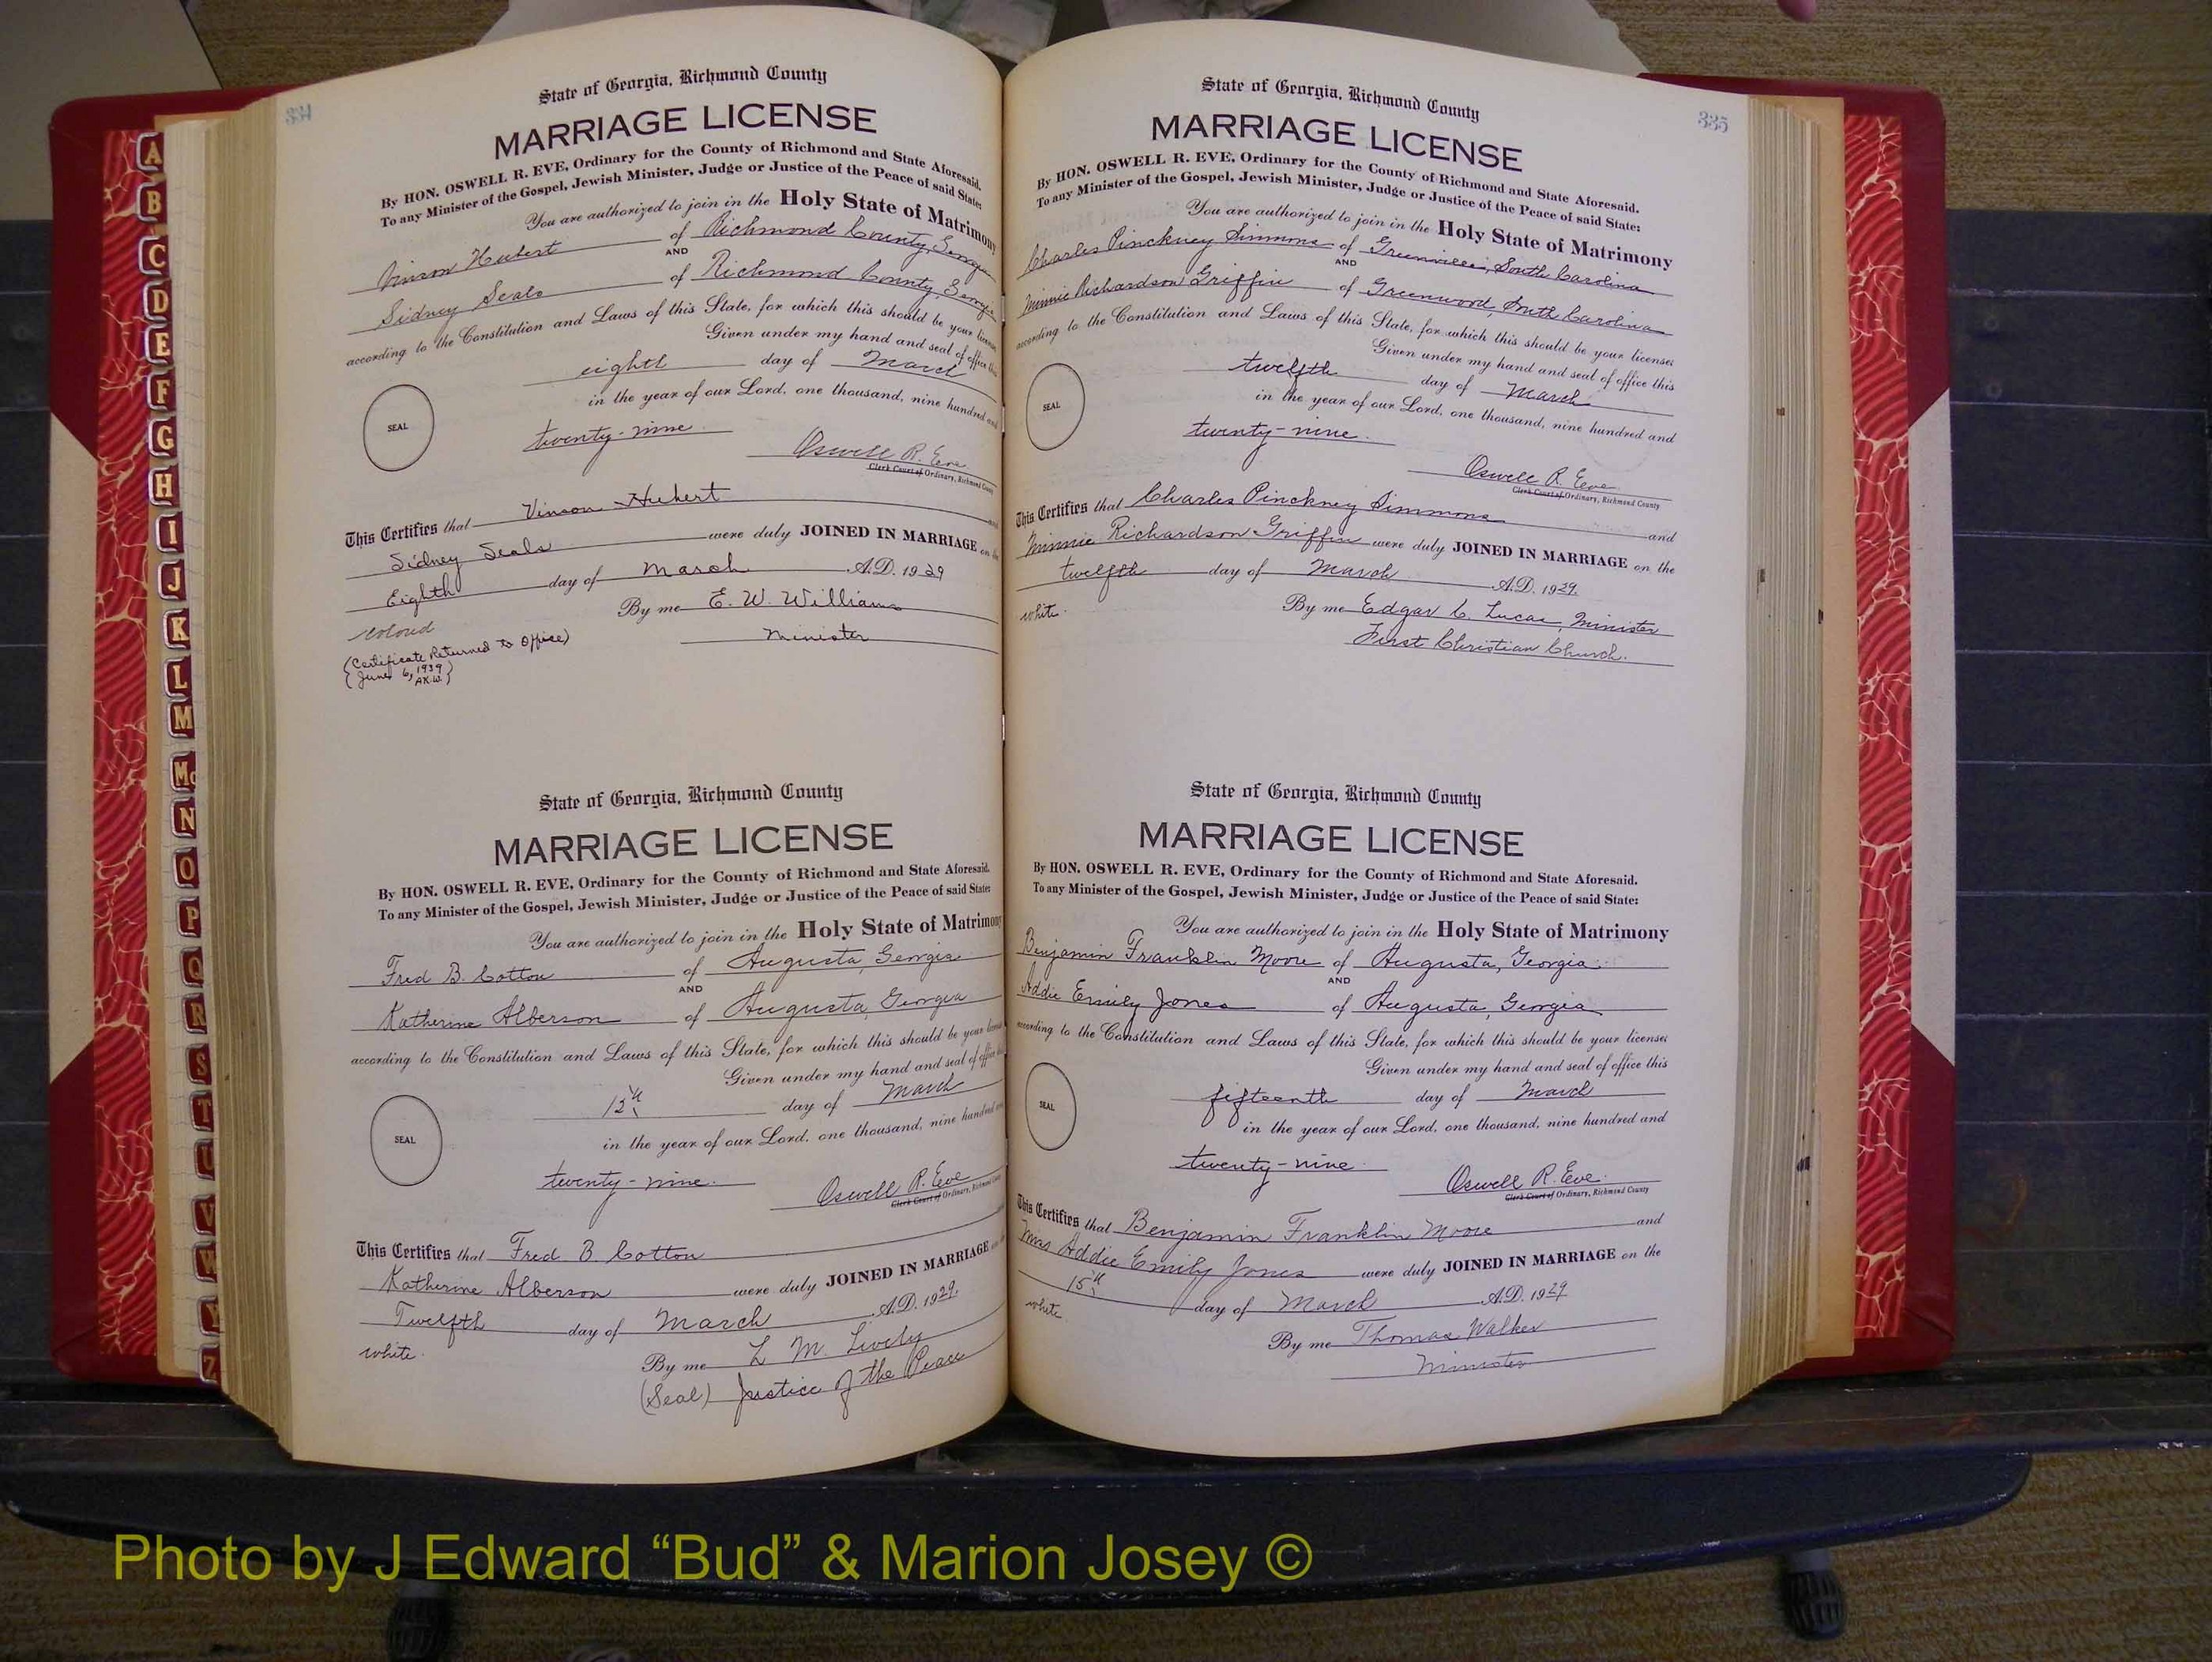 334
State of Georgia, Richmond County
MARRIAGE LICENSE
By HON. OSWELL R. EVE, Ordinary for the County of Richmond and State Aforesaid.
To any Minister of the Gospel, Jewish Minister, Judge or Justice of the Peace of said State:
You are authorized to join in the Holy State of Matrimony
Vinson Hubert of Richmond County,
AND
Sidney Seals of Richmond County,
according to the Constitution and Laws of this State, for which this should be your
Given under my hand and seal of office this
eighth day of March
in the year of our Lord, one thousand, nine hundred and
SEAL
twenty-nine
Oswell R. Eve
Clerk Court of Ordinary, Richmond County
This Certifies that Vinson Hubert and
Sidney Seals were duly JOINED IN MARRIAGE on the
Eighth day of March A.D. 1929
By me E. W. Williams
Minister
colored
(Certificate Returned to Office)
June 6, 1939
A.K.W.
State of Georgia, Richmond County
MARRIAGE LICENSE
By HON. OSWELL R. EVE, Ordinary for the County of Richmond and State Aforesaid.
To any Minister of the Gospel, Jewish Minister, Judge or Justice of the Peace of said State:
You are authorized to join in the Holy State of Matrimony
Fred B. Cotton of Augusta, Georgia
AND
Katherine Alberson of Augusta, Georgia
according to the Constitution and Laws of this State, for which this should be your
Given under my hand and seal of office
12th day of March
in the year of our Lord, one thousand, nine hundred
SEAL
twenty-nine.
Oswell R. Eve
Clerk Court of Ordinary, Richmond County
This Certifies that Fred B. Cotton
Katherine Alberson were duly JOINED IN MARRIAGE
Twelfth day of March A.D. 1929.
white.
By me L M. Lively
(Seal) Justice of the Peace
335
State of Georgia, Richmond County
MARRIAGE LICENSE
By HON. OSWELL R. EVE, Ordinary for the County of Richmond and State Aforesaid.
To any Minister of the Gospel, Jewish Minister, Judge or Justice of the Peace of said State:
You are authorized to join in the Holy State of Matrimony
Charles Pinckney Simmons of Greenville, South Carolina
AND
Minnie Richardson Griffin of Greenwood, South Carolina
according to the Constitution and Laws of this State, for which this should be your license:
Given under my hand and seal of office this
twelfth day of March
in the year of our Lord, one thousand, nine hundred and
SEAL
twenty-nine.
Oswell R. Eve
Clerk Court of Ordinary, Richmond County
This Certifies that Charles Pinckney Simmons and
Minnie Richardson Griffin were duly JOINED IN MARRIAGE on the
twelfth day of March A.D. 1929.
white.
By me Edgar C. Lucas, Minister
First Christian Church.
State of Georgia, Richmond County
MARRIAGE LICENSE
By HON. OSWELL R. EVE, Ordinary for the County of Richmond and State Aforesaid.
To any Minister of the Gospel, Jewish Minister, Judge or Justice of the Peace of said State:
You are authorized to join in the Holy State of Matrimony
Benjamin Franklin Moore of Augusta, Georgia
AND
Addie Emily Jones of Augusta, Georgia
according to the Constitution and Laws of this State, for which this should be your license:
Given under my hand and seal of office this
fifteenth day of March
in the year of our Lord, one thousand, nine hundred and
SEAL
twenty-nine.
Oswell R. Eve.
Clerk Court of Ordinary, Richmond County
This Certifies that Benjamin Franklin Moore and
Addie Emily Jones were duly JOINED IN MARRIAGE on the
15th day of March A.D. 1929
white.
By me Thomas Walker
Minister
A
B
C
D
E
F
G
H
I
J
K
L
M
Mc
N
O
P
Q
R
S
T
U
V
W
Y
Z
Photo by J Edward “Bud” & Marion Josey ©